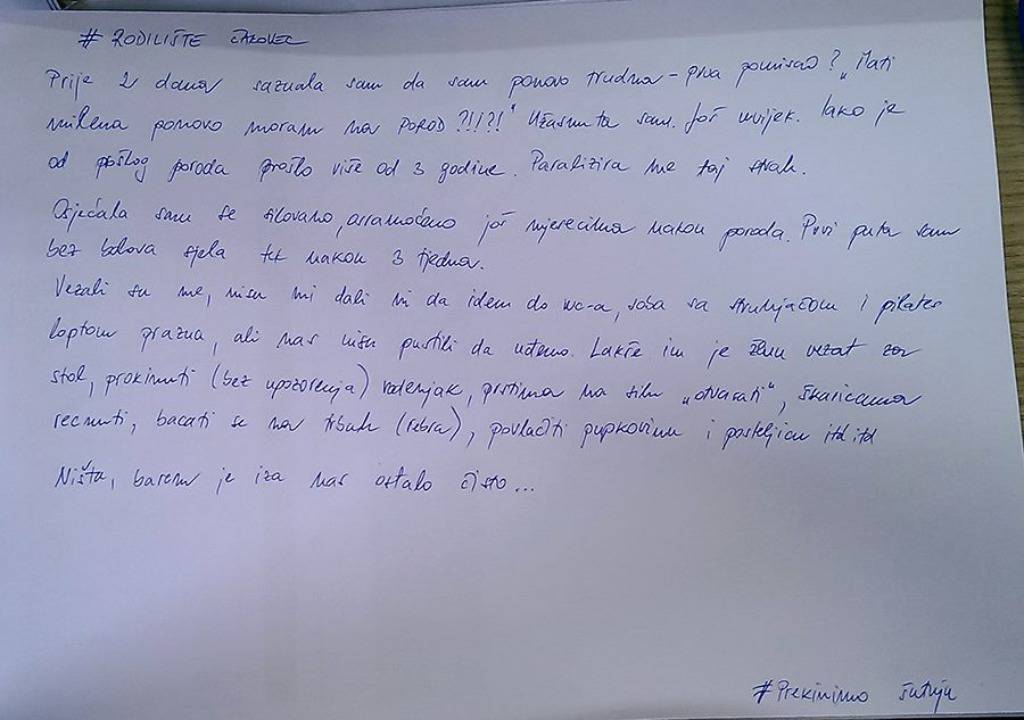 # RODILIŠTE ČAKOVEC
Prije 2 dana saznala sam da sam ponovo trudna - prva pomisao? "Mati
milena ponovo moram na POROD ?!!?!" Užasnuta sam. Još uvijek. Iako je
od prošlog poroda prošlo više od 3 godine. Paralizira me taj strah.
Osjećala sam se silovano, osramoćeno još mjesecima nakon poroda. Prvi puta sam
bez bolova sjela tek nakon 3 tjedna.
Vezali su me, nisu mi dali ni da idem do wc-a, soba sa strunjačom i pilates
loptom prazna, ali nas nisu pustili da uđemo. Lakše im je ženu vezat za
stol, prokinuti (bez upozorenja) vodenjak, prstima na silu "otvarati", škaricama
recnuti, bacati se na trbuh (rebra), povlačiti pupkovinu i posteljicu itd itd
Ništa, barem je iza nas ostalo čisto...
#Prekinimo šutnju